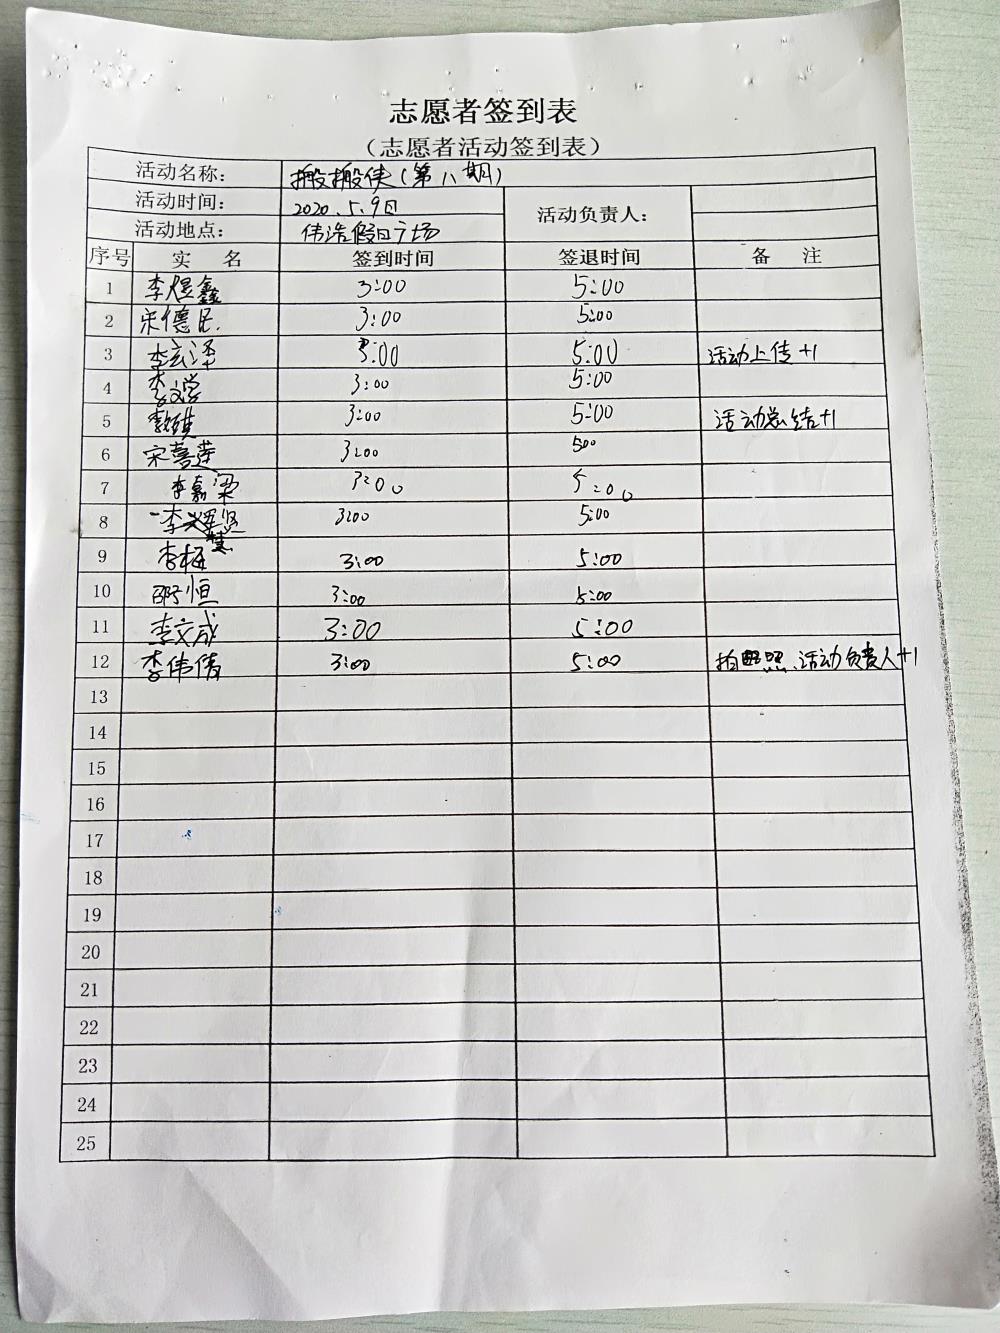 志愿者签到表
(志愿者活动签到表)
活动名称: 搬搬侠(第八期)
活动时间: 2020.5.9日 活动负责人:
活动地点: 伟浩假日广场
序号 实 名 签到时间 签退时间 备 注
1 李煜鑫 3:00 5:00
2 宋德民 3:00 5:00
3 李玄泽 3:00 5:00 活动上传+1
4 李文学 3:00 5:00
5 3:00 5:00 活动总结+1
6 宋喜莲 3:00 5:00
7 李嘉梁 3:00 5:00
8 李 3:00 5:00
9 李梅 3:00 5:00
10 邵恒 3:00 5:00
11 李文成 3:00 5:00
12 李伟倩 3:00 5:00 拍照、活动负责人+1
13
14
15
16
17
18
19
20
21
22
23
24
25